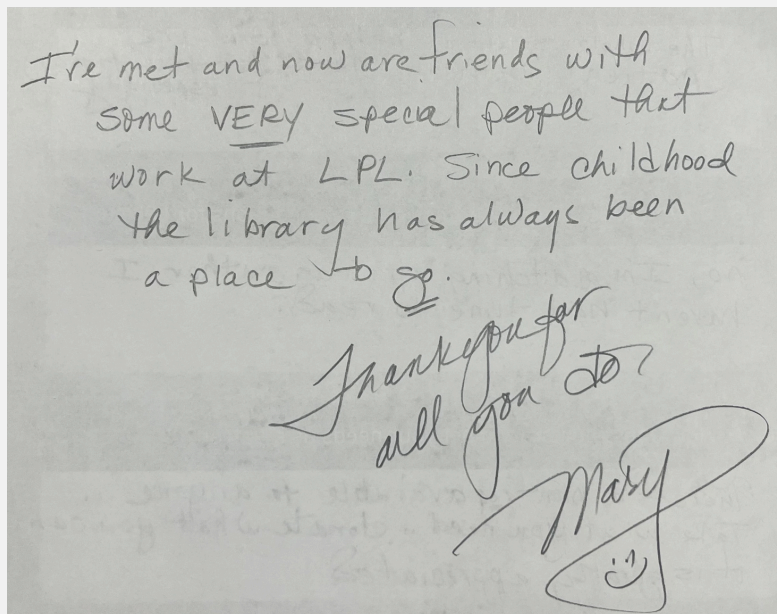 I've met and now are friends with
some VERY special people that
work at LPL. Since childhood
the library has always been
a place to go.
Thank you for
all you do
Mary